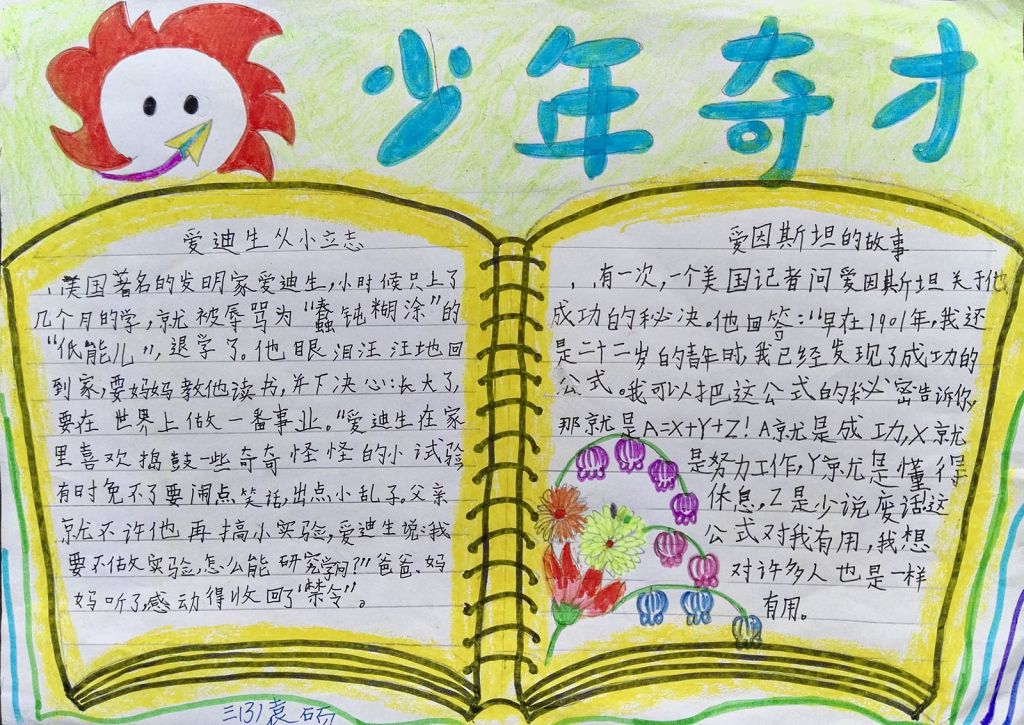 少年奇才
爱迪生从小立志
美国著名的发明家爱迪生，小时候只上了
几个月的学，就被辱骂为“蠢钝糊涂”的
“低能儿”，退学了。他眼泪汪汪地回
到家，要妈妈教他读书，并下决心：长大了，
要在世界上做一番事业。“爱迪生在家
里喜欢捣鼓一些奇奇怪怪的小试验
有时免不了要闹点笑话，出点小乱子。父亲
就不许他再搞小实验，爱迪生说：我
要不做实验，怎么能研究学问？”爸爸、妈
妈听了，感动得收回了“禁令”。
爱因斯坦的故事
有一次，一个美国记者问爱因斯坦关于他
成功的秘决。他回答：“早在1901年，我还
是二十二岁的青年时，我已经发现了成功的
公式。我可以把这公式的秘密告诉你，
那就是A=X+Y+Z！A就是成功，X就
是努力工作，Y就是懂得
休息，Z是少说废话这
公式对我有用，我想
对许多人也是一样
有用。
三（3）袁硕